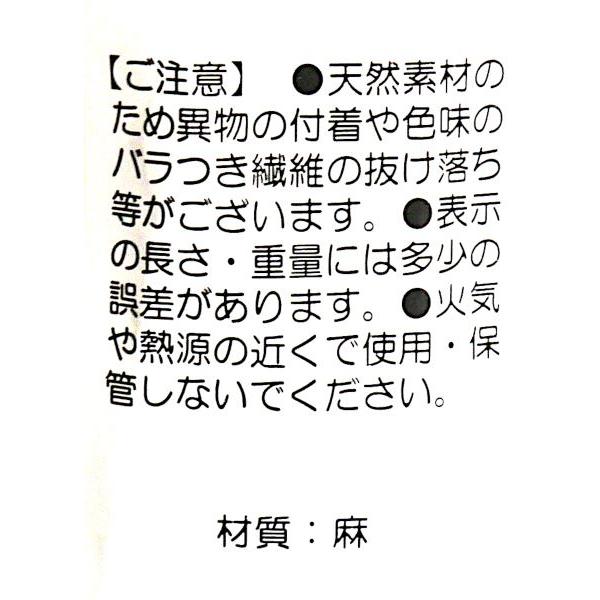 【ご注意】 ●天然素材の
ため異物の付着や色味の
バラつき繊維の抜け落ち
等がございます。●表示
の長さ・重量には多少の
誤差があります。●火気
や熱源の近くで使用・保
管しないでください。
材質：麻